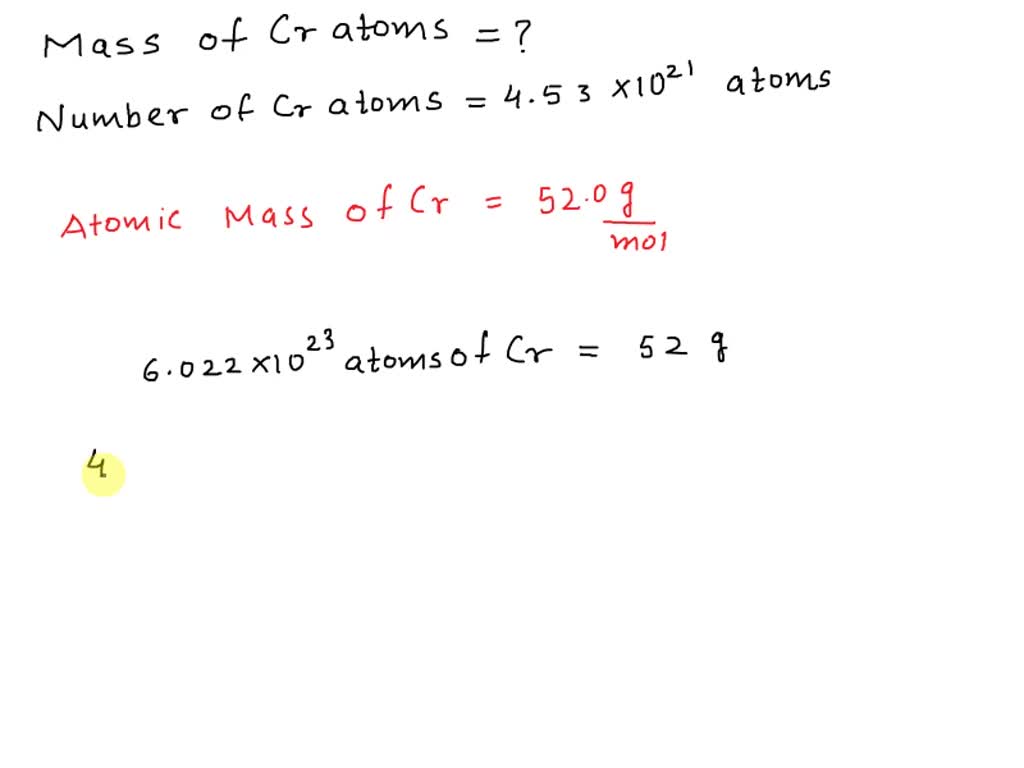 Mass of Cr atoms = ?
Number of Cr atoms = 4.53 ×10²¹ atoms
Atomic Mass of Cr = 52.0 g/mol
6.022 ×10²³ atoms of Cr = 52 g
4